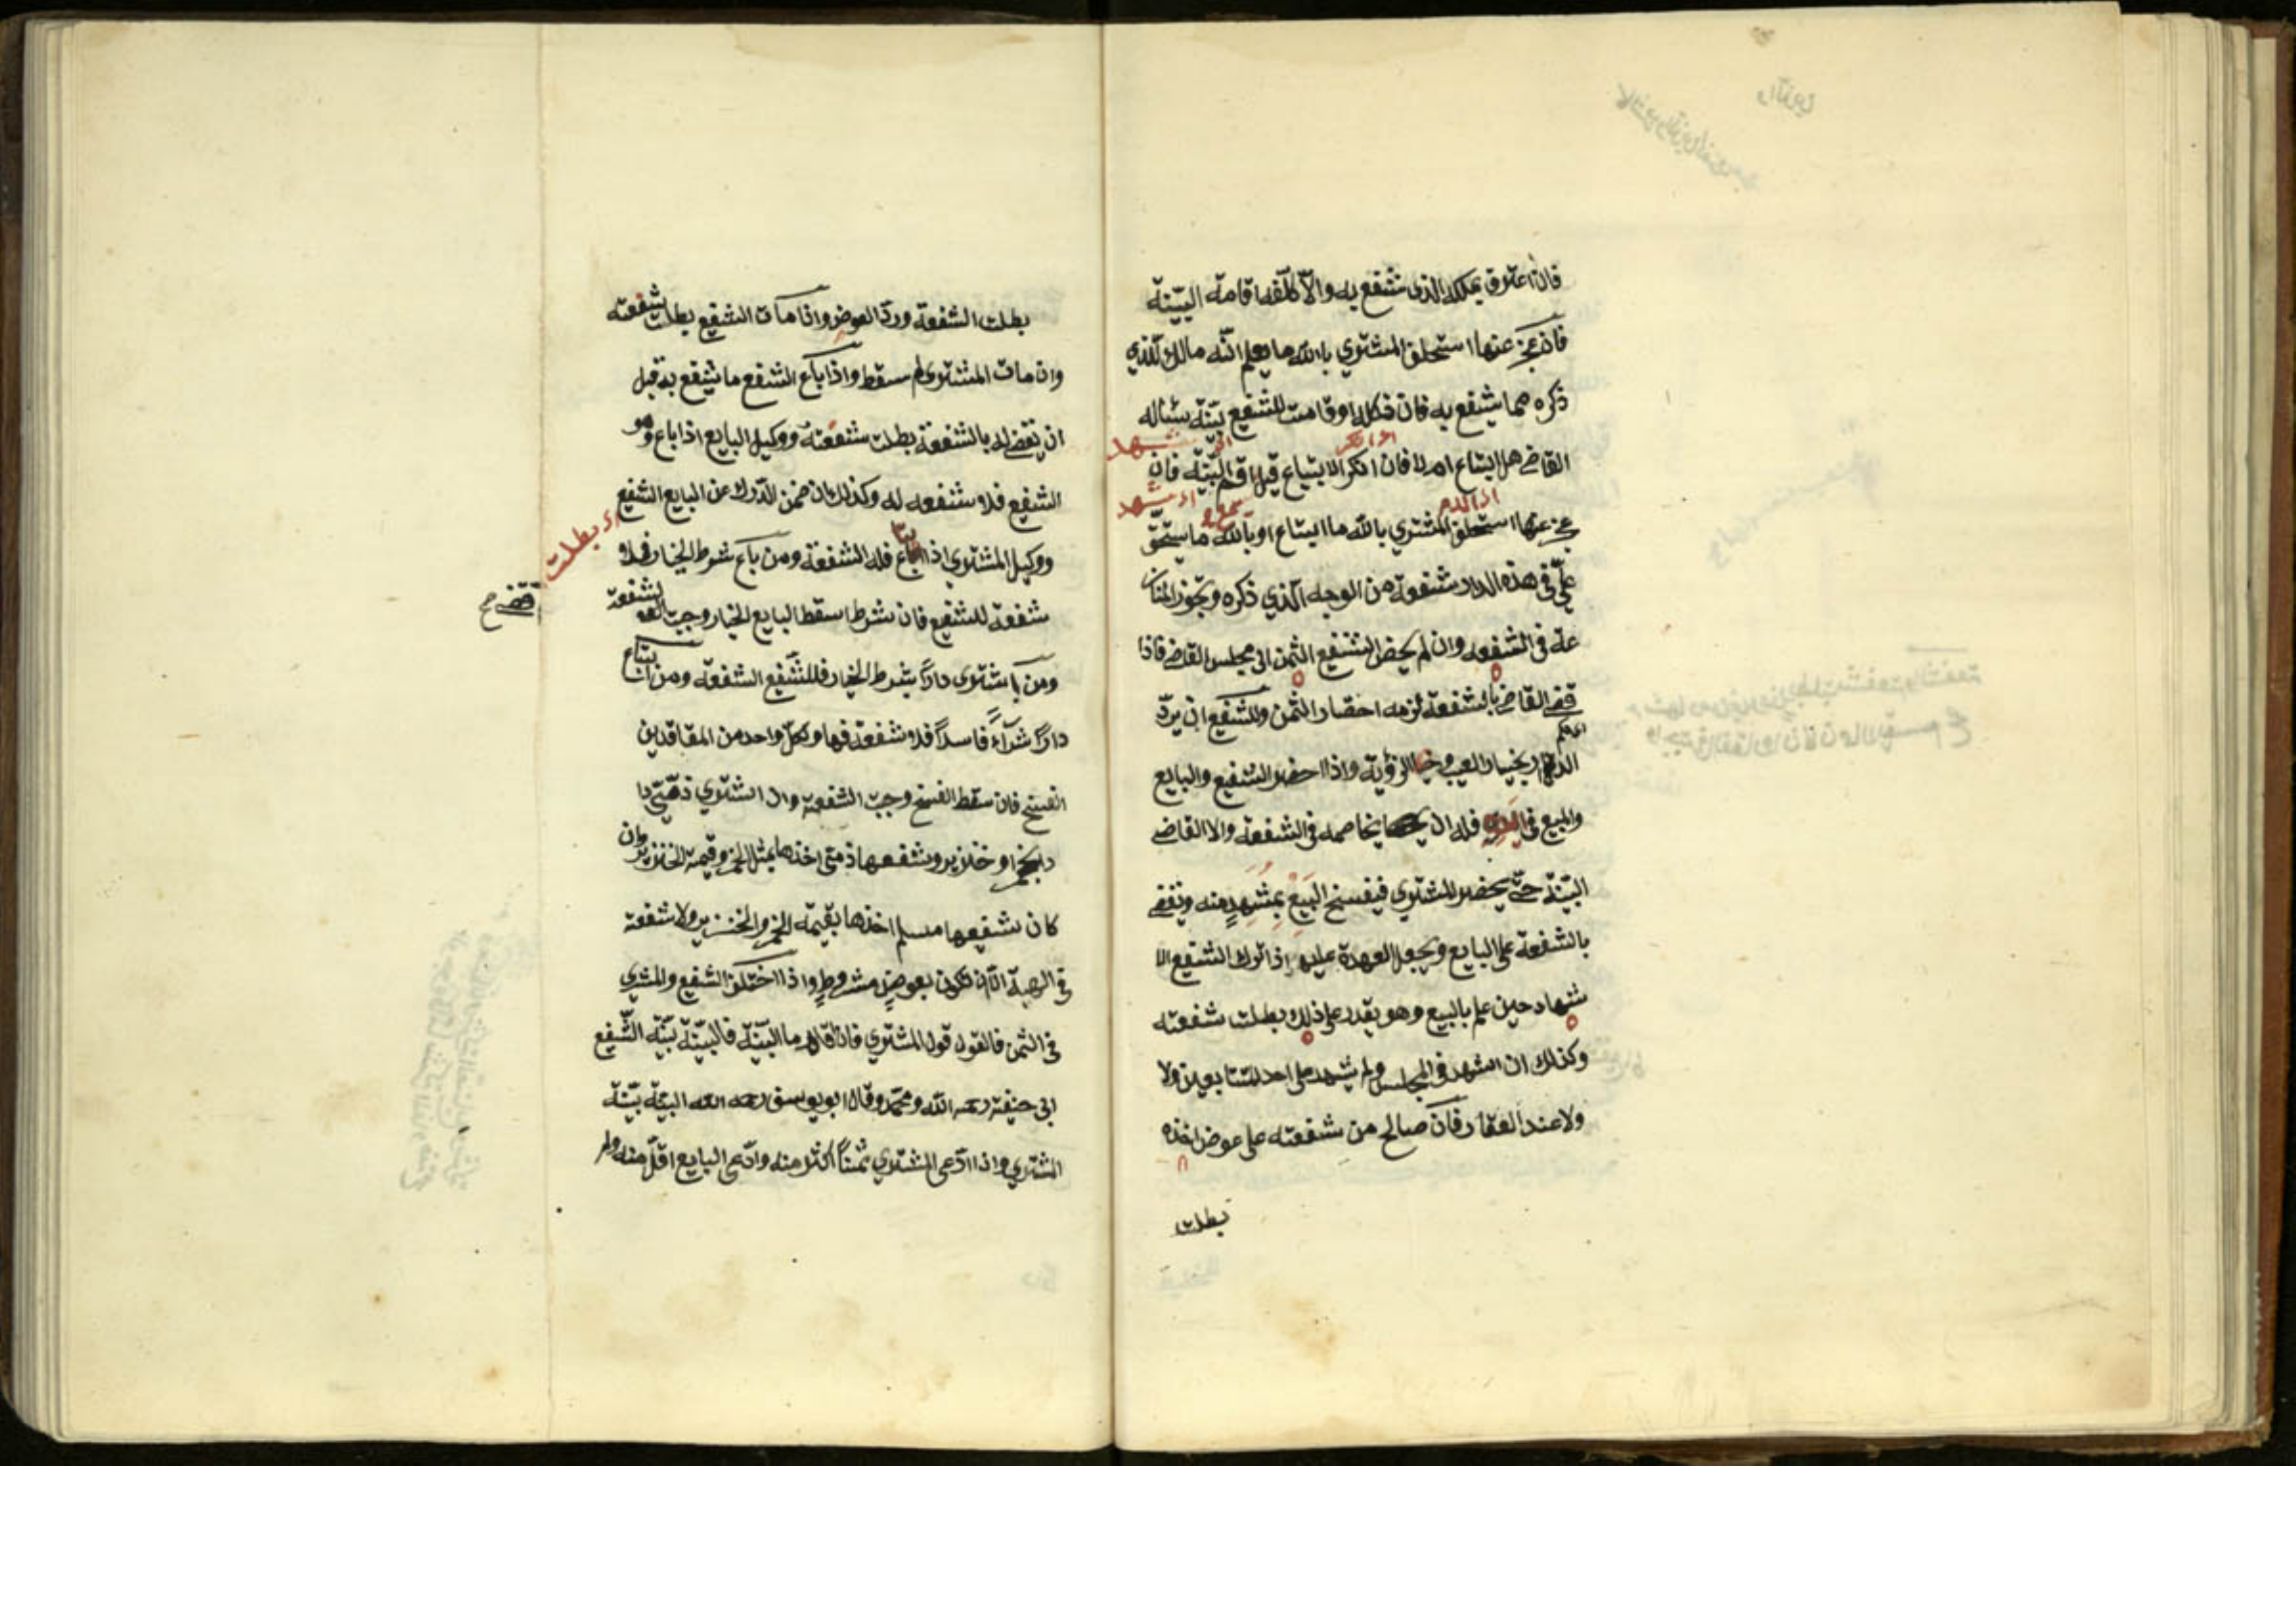 فان اعترف بملكه الذى يشفع به والّا كلّفه اقامة البيّنة
فان عجز عنها استحلف المشتري بالله ما يعلم انّه مالك للذي
ذكره مما يشفع به فان نكل او قامت للشفيع بيّنة سئاله
القاضى هل ابتاع ام لا فان انكر الابتياع قيل اقم البيّنة فان
عجز عنها استحلف المشتري بالله ما ابتاع او بالله ما يستحقّ
علىّ فى هذه الدار شفعة من الوجه الّذي ذكره وتجوز المناز
عة فى الشفعه وان لم يحضر الشفيع الثمن الى مجلس القاضى فاذا
قضى القاضى بالشفعة لزمه احضار الثمن وللشفيع ان يردّ
الدار بخيار العيب وخيار الرؤية واذا احضر الشفيع والبايع
والمبيع فى فله ان يخاصمه فى الشفعة ولا القاضى
البيّنة حتّى يحضر المشتري فيفسخ البيع بمشهد منه ويقضى
بالشفعة على البايع ويجعل العهدة عليه اذا ترك الشفيع الا
شهاد حين علم بالبيع وهو يقدر على ذلك بطلت شفعته
وكذلك ان اشهد فى المجلس ولم يشهد على احد المتبايعين ولا
ولا عند العقار فان صالح من شفعته على عوض اخذه
بطلت
بطلت الشفعة وردّ العوض واذا مات الشفيع بطلت شفعته
وان مات المشترى لم سقط واذا باع الشفيع ما يشفع به قبل
ان يقضى له بالشفعة بطلت شفعته ووكيل البايع اذا باع وهو
الشفيع فلا شفعه له وكذلك ان ضمن الدّرك عن البايع الشفيع
اى بطلت
ووكيل المشتري اذا ابتاع فله الشفعة ومن باع شرط الخيار فلا
شفعة للشفيع فان شرط اسقط البايع الخيار وجبت الشفعة
ومن اشترى دارًا بشرط الخيار فللشّفيع الشفعة ومن ابتاع
دارًا شرآءً فاسدًا فلا شفعة فيها ولكلّ واحد من المتعاقدين
الفسخ فان سقط الفسخ وجبت الشفعة وان اشتري ذمّي دا
را بخمر او خنزير وشفيعها ذمّى اخذها بمثل الخمر وقيمة الخنزير وان
كان شفيعها مسلم اخذها بقيمة الخمر والخنزير ولا شفعة
فى الهبة الّا ان تكون بعوض مشروط واذا اختلف الشفيع والمشتري
فى الثمن فالقول قول المشتري فان اقاما البيّنة فالبيّنة بيّنة الشّفيع
ابى حنيفة رحمه الله ومحمّد وقال ابو يوسف رحمه الله البيّنة بيّنة
المشتري واذا ادّعى المشتري ثمنًا اكثر منه وادّعى البايع اقلّ منه ولم